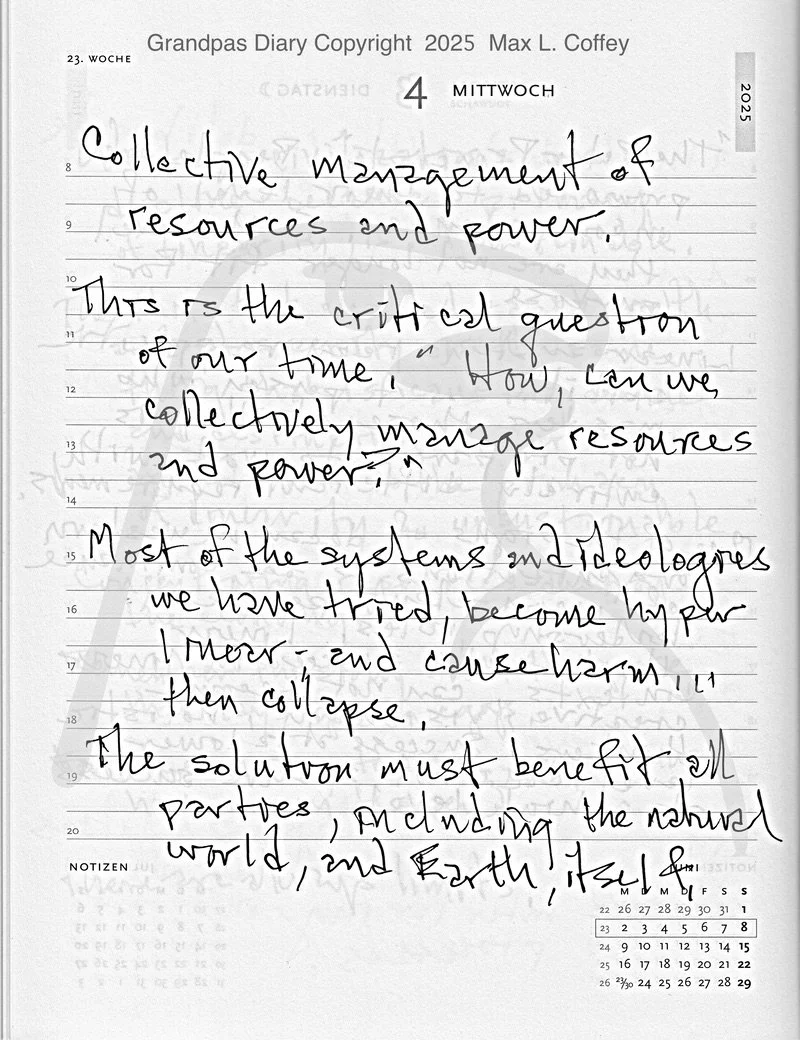 Grandpas Diary Copyright 2025 Max L. Coffey
23. WOCHE
4 MITTWOCH
2025
8 Collective management of
9 resources and power.
10 This is the critical question
11 of our time, " How, can we,
12 collectively manage resources
13 and power?"
14
15 Most of the systems and ideologies
16 we have tried, become hyper
17 linear -, and cause harm ...
18 then collapse.
19 The solution must benefit all
parties, including the natural
20 world, and Earth, itself.
NOTIZEN
JUNI
M D M D F S S
22 26 27 28 29 30 31 1
23 2 3 4 5 6 7 8
24 9 10 11 12 13 14 15
25 16 17 18 19 20 21 22
26 23/30 24 25 26 27 28 29